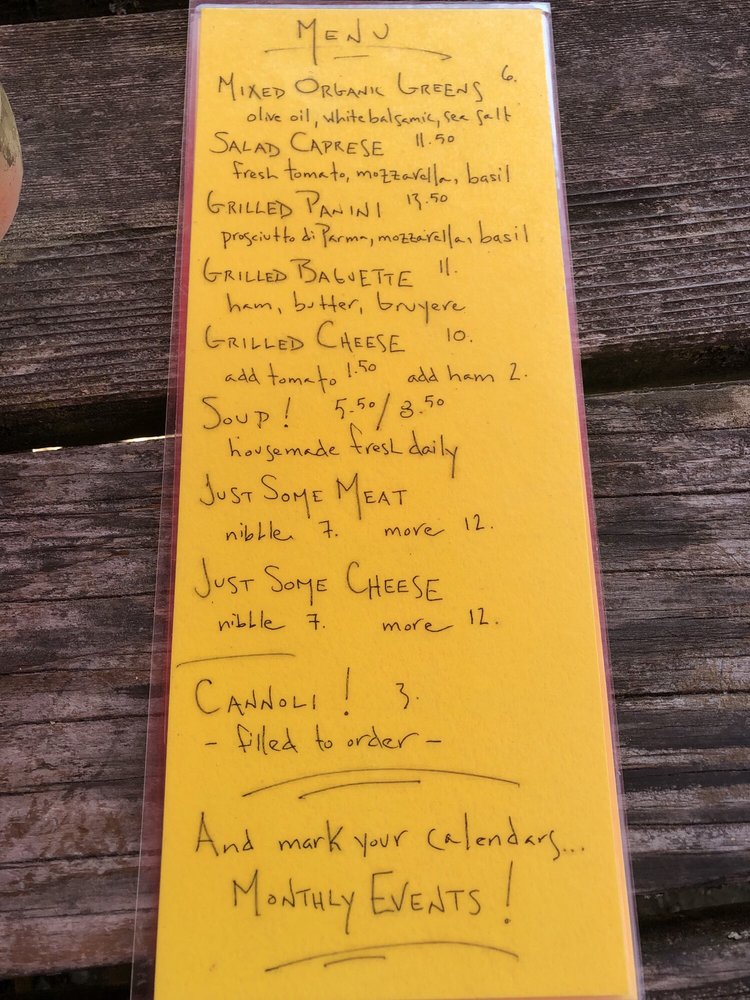 MENU
MIXED ORGANIC GREENS 6.
olive oil, white balsamic, sea salt
SALAD CAPRESE 11.50
fresh tomato, mozzarella, basil
GRILLED PANINI 13.50
prosciutto di Parma, mozzarella, basil
GRILLED BAGUETTE 11.
ham, butter, gruyere
GRILLED CHEESE 10.
add tomato 1.50 add ham 2.
SOUP! 5.50/8.50
housemade fresh daily
JUST SOME MEAT
nibble 7. more 12.
JUST SOME CHEESE
nibble 7. more 12.
CANNOLI! 3.
- filled to order -
And mark your calendars...
MONTHLY EVENTS!